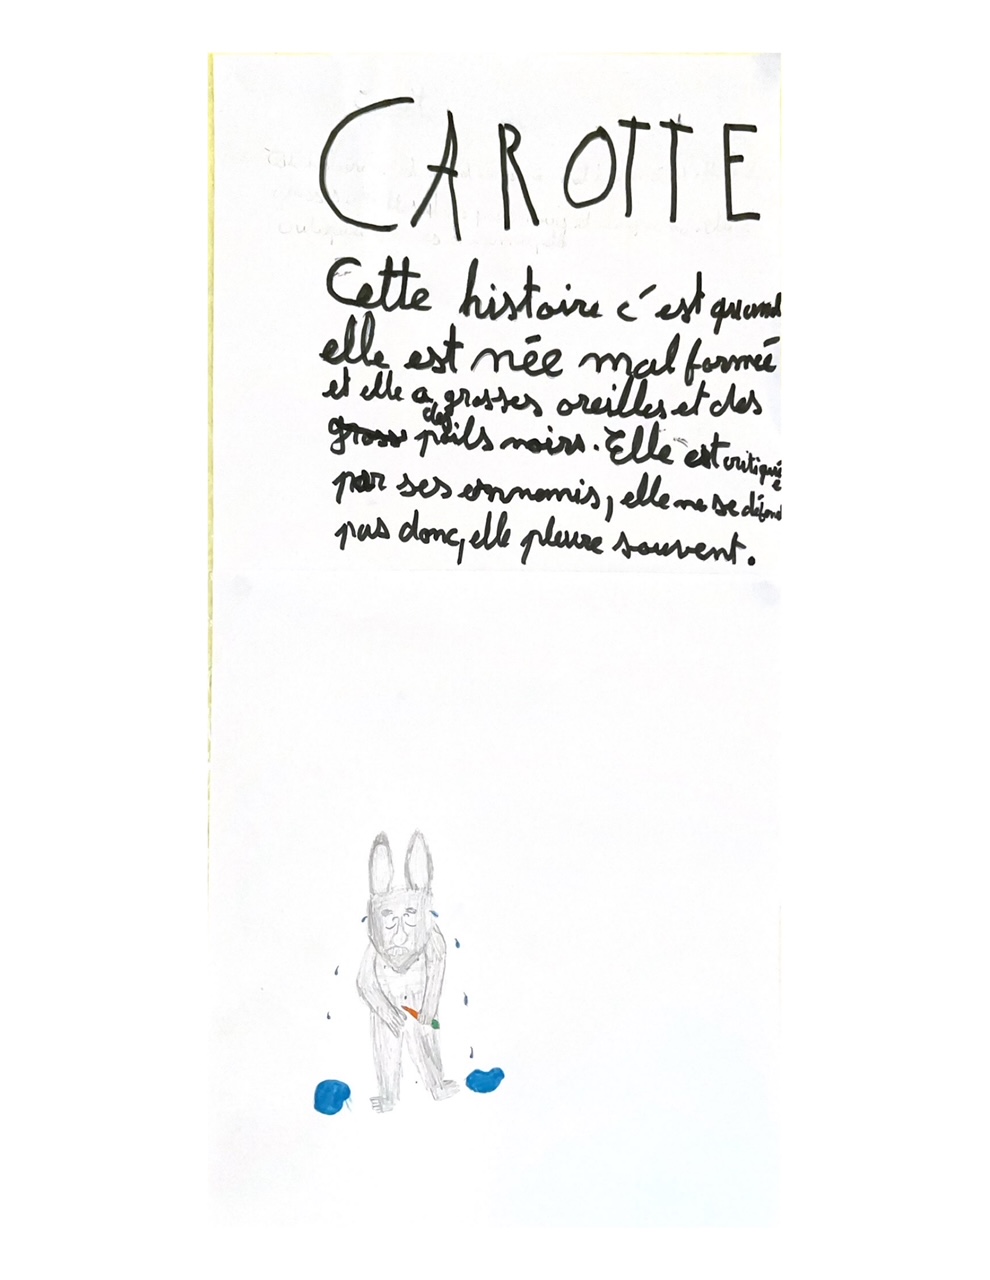 CAROTTE
Cette histoire c'est quand
elle est née mal formée
et elle a grosses oreilles et des
des
gross poils noirs. Elle est critiquée
par ses ennemis, elle ne se défend
pas donc, elle pleure souvent.